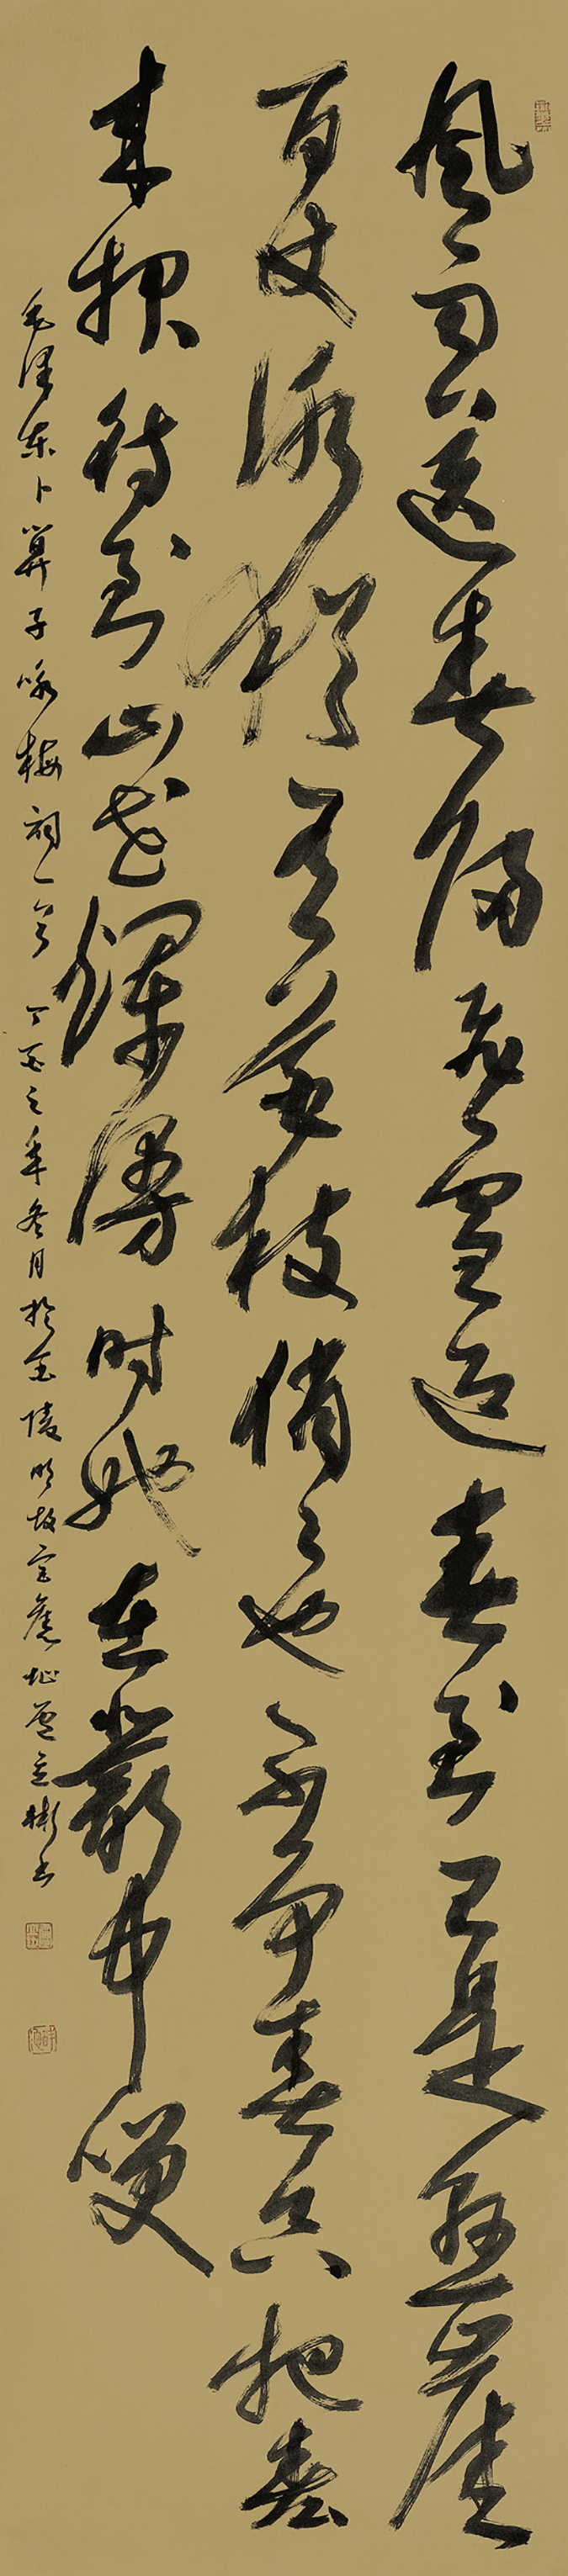 風雨送春歸飛雪迎春到已是懸崖
百丈冰猶有花枝俏々也不争春只把春
来報待到山花爛漫時她在叢中咲
毛澤东卜算子咏梅詞一首 丁酉之年冬月於金陵明故宫舊址立彬书